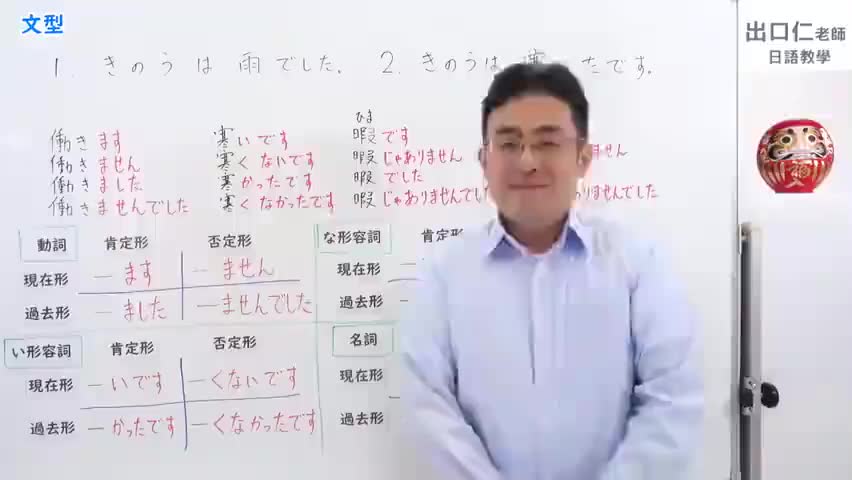 文型
出口仁老師
日語教學
1. きのうは雨でした。 2. きのうは寒 たです。
ひま
働きます 寒いです 暇です
働きません 寒くないです 暇じゃありません ません
働きました 寒かったです 暇でした
働きませんでした 寒くなかったです 暇じゃありませんでし ありませんでした
動詞 肯定形 否定形 な形容詞 肯定
現在形 ーます ーません 現在形
過去形 ーました ーませんでした 過去形
い形容詞 肯定形 否定形 名詞
現在形 ーいです ーくないです 現在形
過去形 ーかったです ーくなかったです 過去形